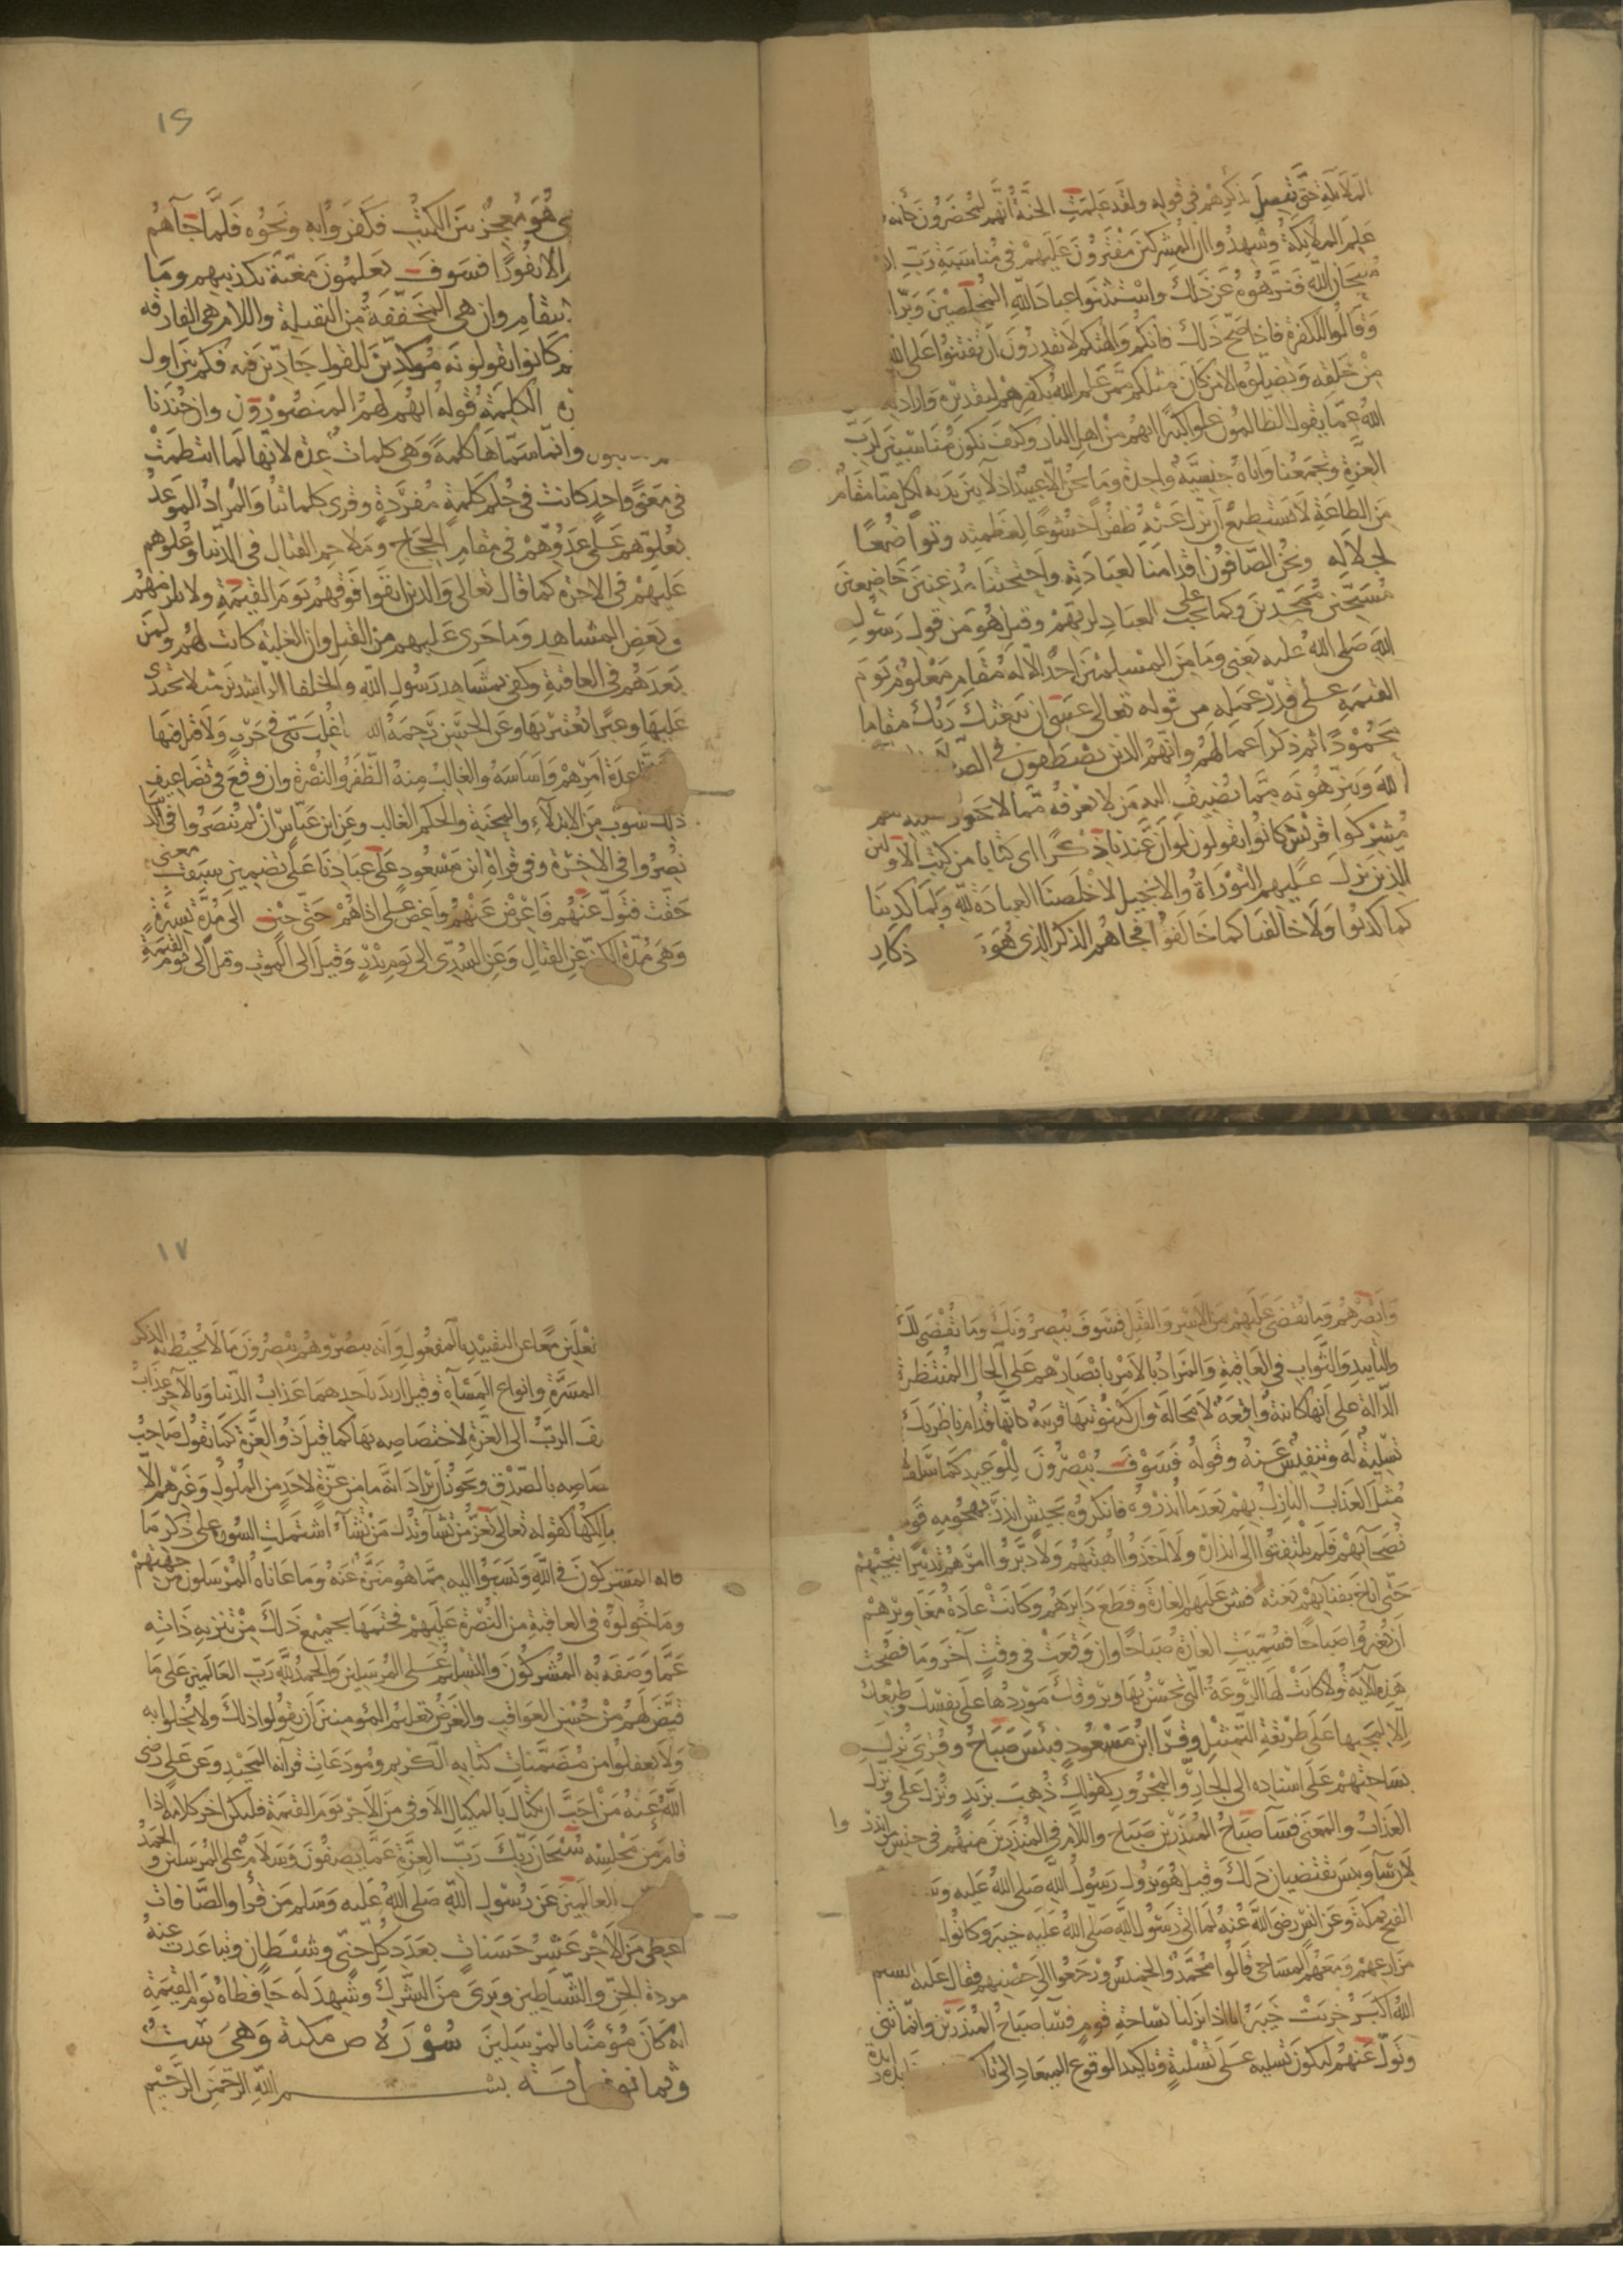 الملائكة حتى يتصل ذكرهم في قوله ولقد علمت الجنة انهم لمحضرون كأنه
علم الملائكة وشهدوا ان المشركين مفترون عليهم في مناسبة رب
سبحان الله فنزهوه عن ذلك واستثنوا عباد الله المخلصين وبرا
وقالوا للكفرة فاذا صح ذلك فانكم والهتكم لا تقدرون ان تفتنوا على الله
من خلقه وتضلوه الا من كان مثلكم ممن علم الله بكفرهم لتقديره وارادته
الله عما يقول الظالمون علوا كبيرا انهم من اهل النار وكيف نكون مناسبين لرب
العزة وتجمعنا واياه جنسية واحدة وما نحن الا عبيد اذلاء بين يديه لكل منا مقام
من الطاعة لا نستطيع ان نزل عنه ظفرا خشوعا لعظمته وتواضعا
لجلاله ونحن الصافون اقدامنا لعبادته واجنحتنا مذعنين خاضعين
مسبحين ممجدين وكما يجب على العباد لربهم وقيل هو من قول رسول
الله صلى الله عليه يعني وما من المسلمين احد الا له مقام معلوم يوم
القيمة على قدر عمله من قوله تعالى عسى ان يبعثك ربك مقاما
محمودا ثم ذكر اعمالهم وانهم الذين يصطفون في
الله وينزهونه مما يضيف اليه من لا يعرفه مما لا يجوز
مشركوا قريش كانوا يقولون لو ان عندنا ذكرا اي كتابا من كتب الاولين
الذين نزل عليهم التوراة والانجيل لاخلصنا العبادة لله ولما كذبنا
كما كذبوا ولا خالفنا كما خالفوا فجاهم الذكر الذي هو ذكار
١٦
هو معجز من بين الكتب فكفروا به ونحوه فلما جاهم
الا نفورا فسوف يعلمون مغبة تكذيبهم وما
انتقام وان هي المخففة من الثقيلة واللام هي الفارقة
كانوا يقولونه مؤكدين للقول جادين فيه فكم بين اول
الكلمة قوله انهم لهم المنصورون وان جندنا
وانما سماها كلمة وهي كلمات عدة لانها لما انتظمت
في معنى واحد كانت في حكم كلمة مفردة وقرى كلماتنا والمراد الموعد
بعلوهم على عدوهم في مقام الحجاج وملاحم القتال في الدنيا وعلوهم
عليهم في الاخرة كما قال تعالى والذين اتقوا فوقهم يوم القيمة ولا يلزم هم
في بعض المشاهد وما جرى عليهم من القتل وان الغلبة كانت لهم ولمن
بعدهم في العاقبة وكفى بمشاهد رسول الله والخلفا الراشدين مثلا يحتذى
عليها وعبرا يعتبر بها وعن الحسن رحمه الله ما غلب نبي في حرب ولا قتل فيها
قاعدة امرهم واساسه والغالب منه الظفر والنصرة وان وقع في تضاعيف
ذلك شوب من الابتلاء والمحنة والحكم للغالب وعن ابن عباس ان لم ينصروا في الدنيا
نصروا في الاخرة وفي قراة ابن مسعود على عبادنا على تضمين سبقت معنى
حقت فتول عنهم فاعرض عنهم واغض على اذاهم حتى حين الى مدة يسيرة
وهي مدة الكف عن القتال وعن السدى الى يوم بدر وقيل الى الموت وقيل الى يوم القيمة
وابصرهم وما يقضى عليهم من الاسر والقتل فسوف يبصرونك وما يقضى لك
والتاييد والثواب في العاقبة والمراد بالامر بابصارهم على الحال المنتظرة
الدالة على انها كائنة واقعة لا محالة وان كينونتها قريبة كانها قدام ناظريك
تسلية له وتنفيس عنه وقوله فسوف يبصرون للوعيد كما سلف
مثل العذاب النازل بهم بعد ما انذروه فانكروه بجيش انذر بهجومه قوم
نصحابهم فلم يلتفتوا الى انذاره ولا اخذوا اهبتهم ولا دبروا امرهم تدبيرا ينجيهم
حتى اناخ بفنائهم بغتة فشن عليهم الغارة وقطع دابرهم وكانت عادة مغاويرهم
ان يغيروا صباحا فسميت الغارة صباحا وان وقعت في وقت آخر وما فصحت
هذه الآية ولا كانت لها الروعة التي تحس بها ويروقك موردها على نفسك وطبعك
الا لمجيئها على طريقة التمثيل وقرا ابن مسعود فبئس صباح وقرى نزل
بساحتهم على اسناده الى الجار والمجرور كقولك ذهب بزيد ونزل على ونزل
العذاب والمعنى فسآ صباح المنذرين صباح واللام في المنذرين منهم في جنس من انذروا
لان سآ وبئس تقتضيان ذلك وقيل هو نزول رسول الله صلى الله عليه
الفتح بمكة وعن انس رضي الله عنه لما اتى رسول الله صلى الله عليه خيبر وكانوا
مزارعهم ومعهم المساحي قالوا محمد والخميس ورجعوا الى حصنهم فقال عليه السلم
الله اكبر خربت خيبر انا اذا نزلنا بساحة قوم فسآ صباح المنذرين وانما ثنى
وتول عنهم ليكون تسلية على تسلية وتاكيدا لوقوع الميعاد الى
١٧
الفعلين معا عن التقييد بالمفعول وانه يبصر وهم يبصرون ما لا يحيط به الذكر
المسرة وانواع المسآة وقيل اريد باحدهما عذاب الدنيا وبالآخر عذاب
الرب الى العزة لاختصاصه بها كما قيل ذو العزة كما تقول صاحب
بالصدق ويجوز ان يراد انه ما من عزة لاحد من الملوك وغيرهم الا
مالكها كقوله تعالى تعز من تشآ وتذل من تشآ اشتملت السورة على ذكر ما
قاله المشركون في الله ونسبوا اليه مما هو منزه عنه وما عاناه المرسلون من جهتهم
وما خولوه في العاقبة من النصرة عليهم فختمها بجميع ذلك من تنزيه ذاته
عما وصفه به المشركون والتسليم على المرسلين والحمد لله رب العالمين على ما
قيض لهم من حسن العواقب والغرض تعليم المؤمنين ان يقولوا ذلك ولا يخلوا به
ولا يغفلوا من مضمنات كتابه الكريم ومودعات قرآنه المجيد وعن علي رضي
الله عنه من احب ان يكتال بالمكيال الاوفى من الاجر يوم القيمة فليكن اخر كلامه اذا
قام من مجلسه سبحان ربك رب العزة عما يصفون وسلام على المرسلين والحمد
العالمين عن رسول الله صلى الله عليه وسلم من قرا والصافات
اعطى من الاجر عشر حسنات بعدد كل جني وشيطان وتباعدت عنه
مردة الجن والشياطين وبرى من الشرك وشهد له حافظاه يوم القيمة
انه كان مؤمنا بالمرسلين سورة ص مكية وهي ست
وثمانون آية بسم الله الرحمن الرحيم